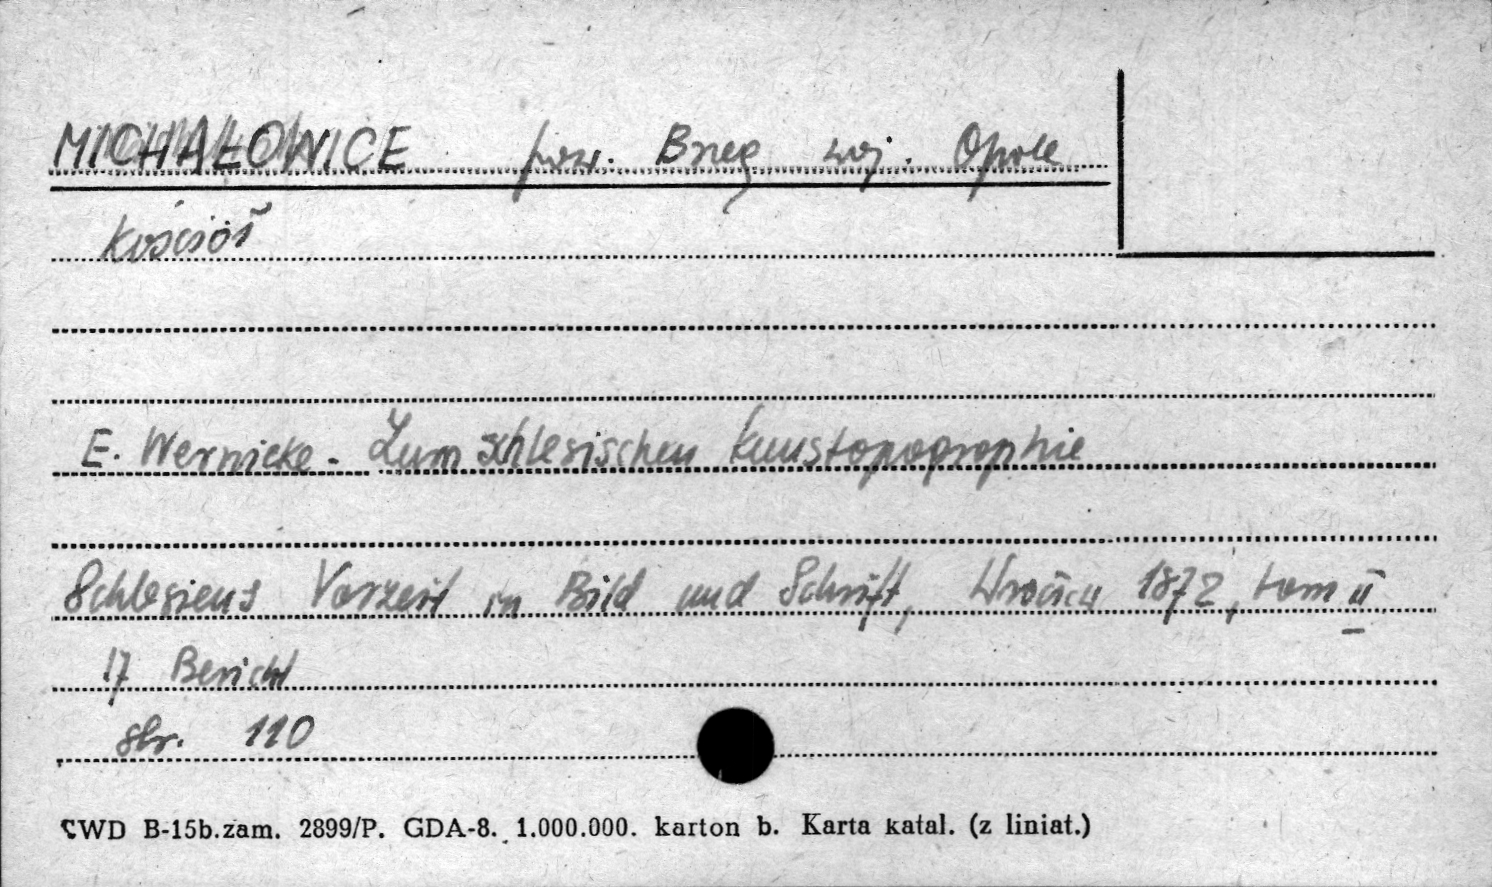 MICHAŁOWICE pow. Brzeg woj. Opole
Kościół
E. Wernicke - Zum schlesischen Kunstopographie
Schlesiens Vorzeit in Bild und Schrift, Wrocław 1872, tom II
17 Bericht
str. 110
CWD B-15b.zam. 2899/P. GDA-8. 1.000.000. karton b. Karta katal. (z liniat.)